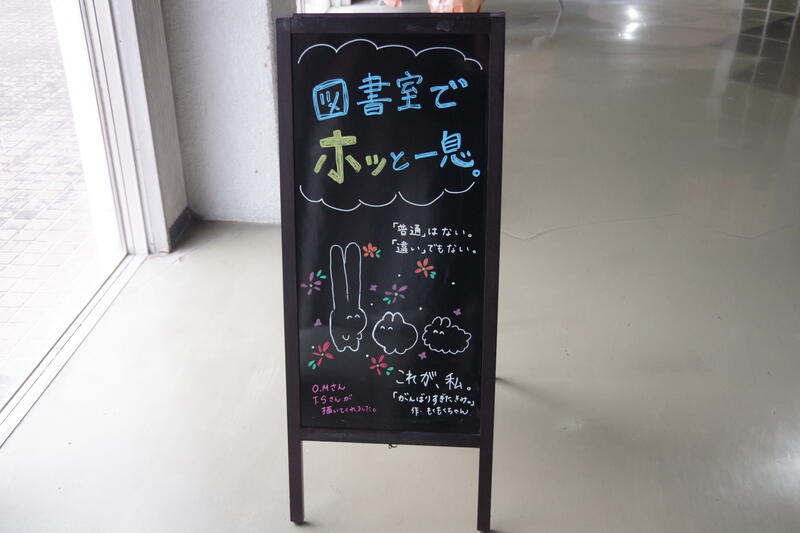 図書室で
ホッと一息。
「普通」はない。
「違い」でもない。
これが、私。
「がんばりすぎたよの。」
作.もくもくちゃん
O.Mさん
T.Sさんが
描いてくれました。